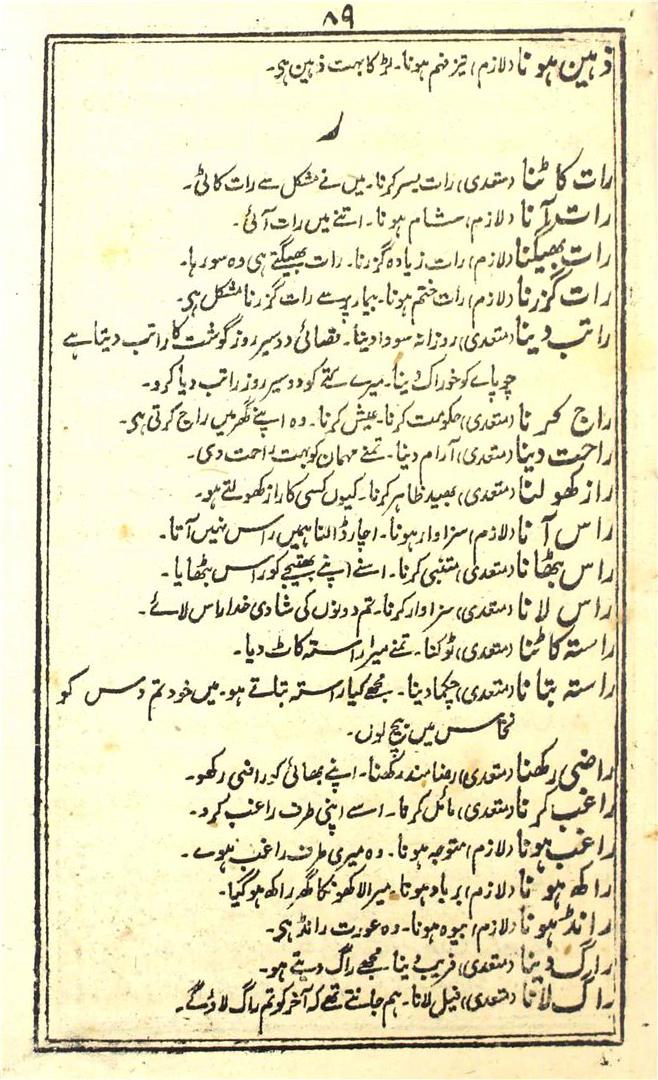 ۸۹
ذہین ہونا (لازم) تیز فہم ہونا۔ لڑکا بہت ذہین ہی۔
ر
رات کاٹنا (متعدی) رات بسر کرنا۔ میں نے مشکل سے رات کاٹی۔
رات آنا (لازم) شام ہونا۔ اتنے میں رات آئی۔
رات بھیگنا (لازم) رات زیادہ گزرنا۔ رات بھیگتے ہی وہ سو رہا۔
رات گزرنا (لازم) رات ختم ہونا۔ بیمار پر سے رات گزرنا مشکل ہی۔
راتب دینا (متعدی) روزانہ سودا دینا۔ قصائی دو سیر روز گوشت کا راتب دیتا ہے
چوپاے کو خوراک دینا۔ میرے کتے کو دو سیر روز راتب دیا کرو۔
راج کرنا (متعدی) حکومت کرنا۔ عیش کرنا۔ وہ اپنے گھر میں راج کرتی ہی۔
راحت دینا (متعدی) آرام دینا۔ تمنے مہمان کو بہت راحت دی۔
راز کھولنا (متعدی) بھید ظاہر کرنا۔ کیوں کسی کا راز کھولتے ہو۔
راس آنا (لازم) سزاوار ہونا۔ اچار ڈالنا ہمیں راس نہیں آتا۔
راس بٹھانا (متعدی) متبنی کرنا۔ اسنے اپنے بھتیجے کو راس بٹھایا۔
راس لانا (متعدی) سزاوار کرنا۔ تم دونوں کی شادی خدا راس لائے۔
راستہ کاٹنا (متعدی) ٹوکنا۔ تمنے میرا راستہ کاٹ دیا۔
راستہ بتانا (متعدی) چکما دینا۔ مجھے کیا راستہ بتاتے ہو۔ میں خود تم دس کو
نخاس میں بیچ لوں۔
راضی رکھنا (متعدی) رضا مند رکھنا۔ اپنے بھائی کو راضی رکھو۔
راغب کرنا (متعدی) مائل کرنا۔ اسے اپنی طرف راغب کرو۔
راغب ہونا (لازم) متوجہ ہونا۔ وہ میری طرف راغب ہوے۔
راکھ ہونا (لازم) برباد ہونا۔ میرا لاکھونکا گھر راکھ ہوگیا۔
رانڈ ہونا (لازم) بیوہ ہونا۔ وہ عورت رانڈ ہی۔
راگ دینا (متعدی) فریب دینا۔ مجھے راگ دیتے ہو۔
راگ لانا (متعدی) فیل لانا۔ ہم جانتے تھے کہ آخر کو تم راگ لاؤگے۔